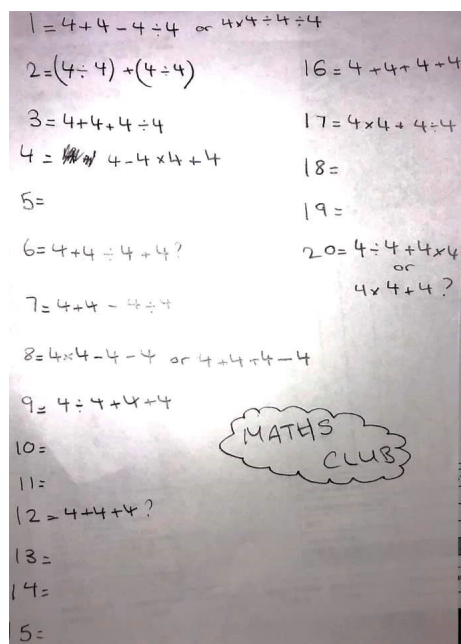 1 = 4+4-4÷4 or 4x4÷4÷4
2=(4÷4)+(4÷4)
3=4+4+4÷4
4 = 4-4x4+4
5=
6=4+4÷4+4?
7=4+4-4÷4
8=4x4-4-4 or 4+4+4-4
9=4÷4+4+4
10=
11=
12=4+4+4?
13=
14=
15=
16=4+4+4+4
17=4x4+4÷4
18=
19=
20=4÷4+4x4
or
4x4+4?
MATHS
CLUB